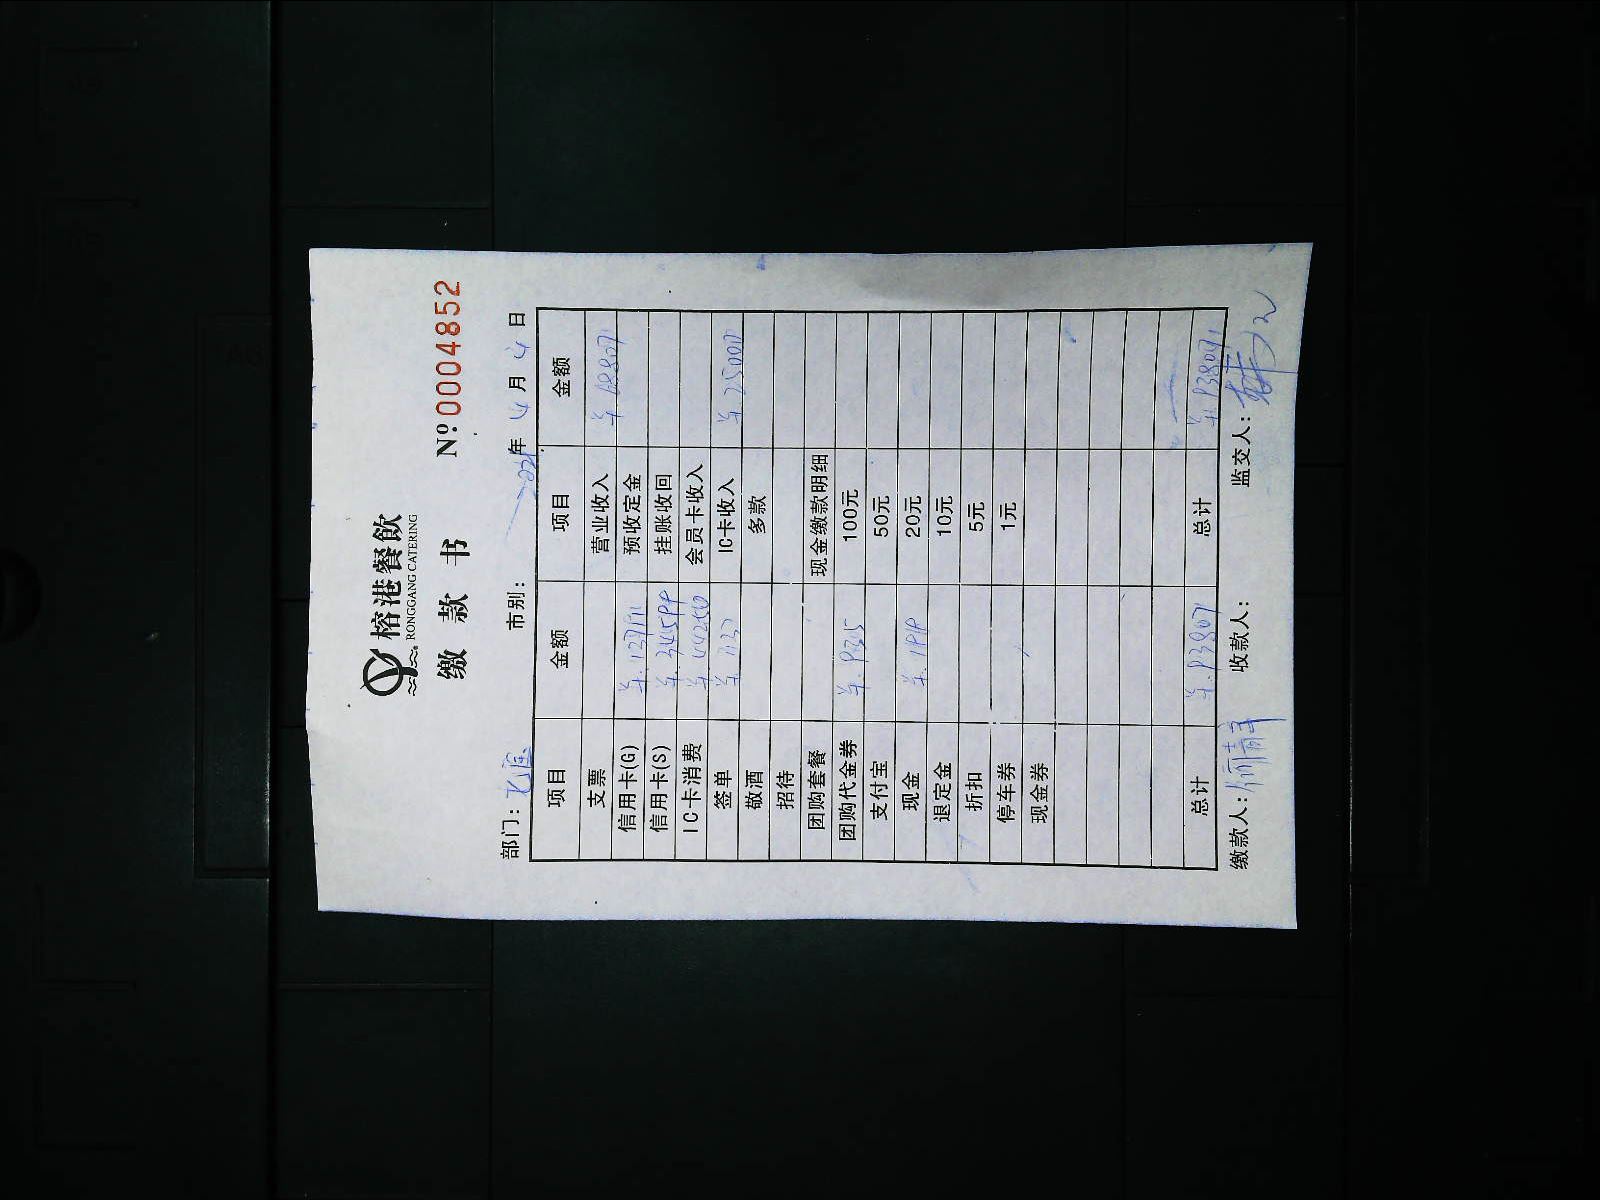 榕港餐飲
RONGGANG CATERING
缴 款 书 Nº:0004852
部门: 市别: 2021年 4月 4日
项目 金额 项目 金额
支票 营业收入 ¥ 68807
信用卡(G) 预收定金
信用卡(S) 挂账收回
IC卡消费 会员卡收入
签单 IC卡收入 ¥ 25000
敬酒 多款
招待
团购套餐 现金缴款明细
团购代金券 100元
支付宝 50元
现金 20元
退定金 10元
折扣 5元
停车券 1元
现金券
总计 ¥ 93807 总计
缴款人: 收款人: 监交人: